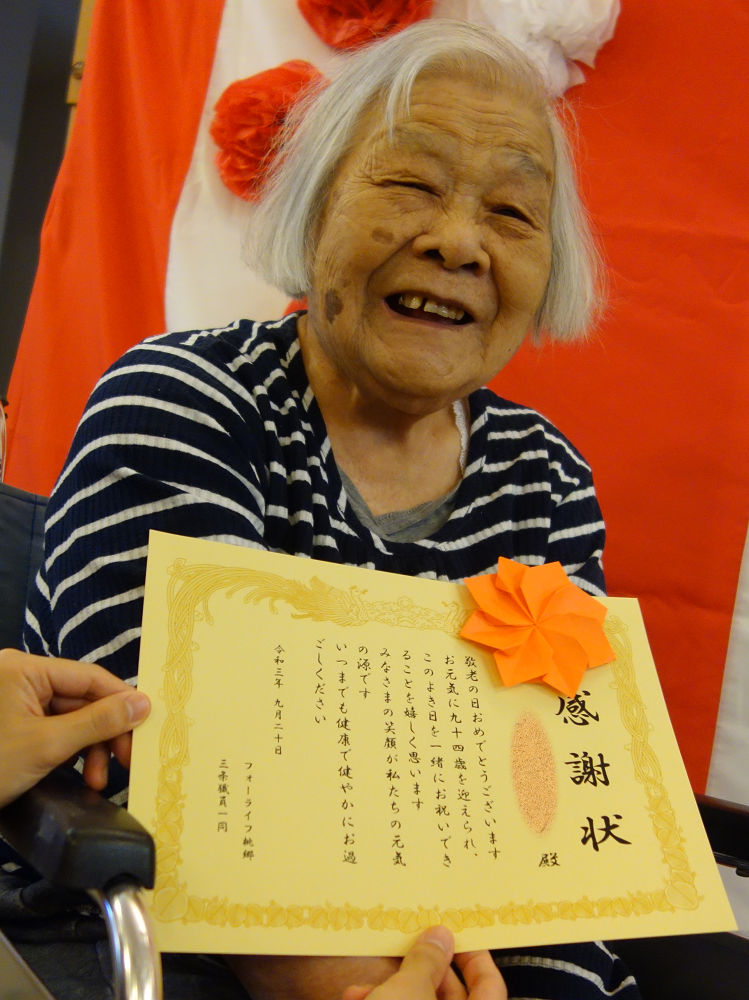 感謝状
殿
敬老の日おめでとうございます
お元気に九十四歳を迎えられ、
このよき日を一緒にお祝いでき
ることを嬉しく思います
みなさまの笑顔が私たちの元気
の源です
いつまでも健康で健やかにお過
ごしください
令和三年 九月二十日
フォーライフ桃郷
三条職員一同